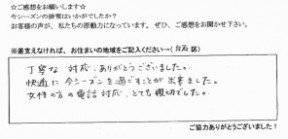 ☆ご感想をお願いします☆
今シーズンの排雪はいかがでしたか?
お客様の声が、私たちの原動力になっています。ぜひ、ご感想をお聞かせ下さい。
※差支えなければ、お住まいの地域をご記入ください→( 区)
丁寧な対応、ありがとうございました。
快適に今シーズンを過ごすことが出来ました。
女性の方の電話対応、とても親切でした。
ご協力ありがとうございました!